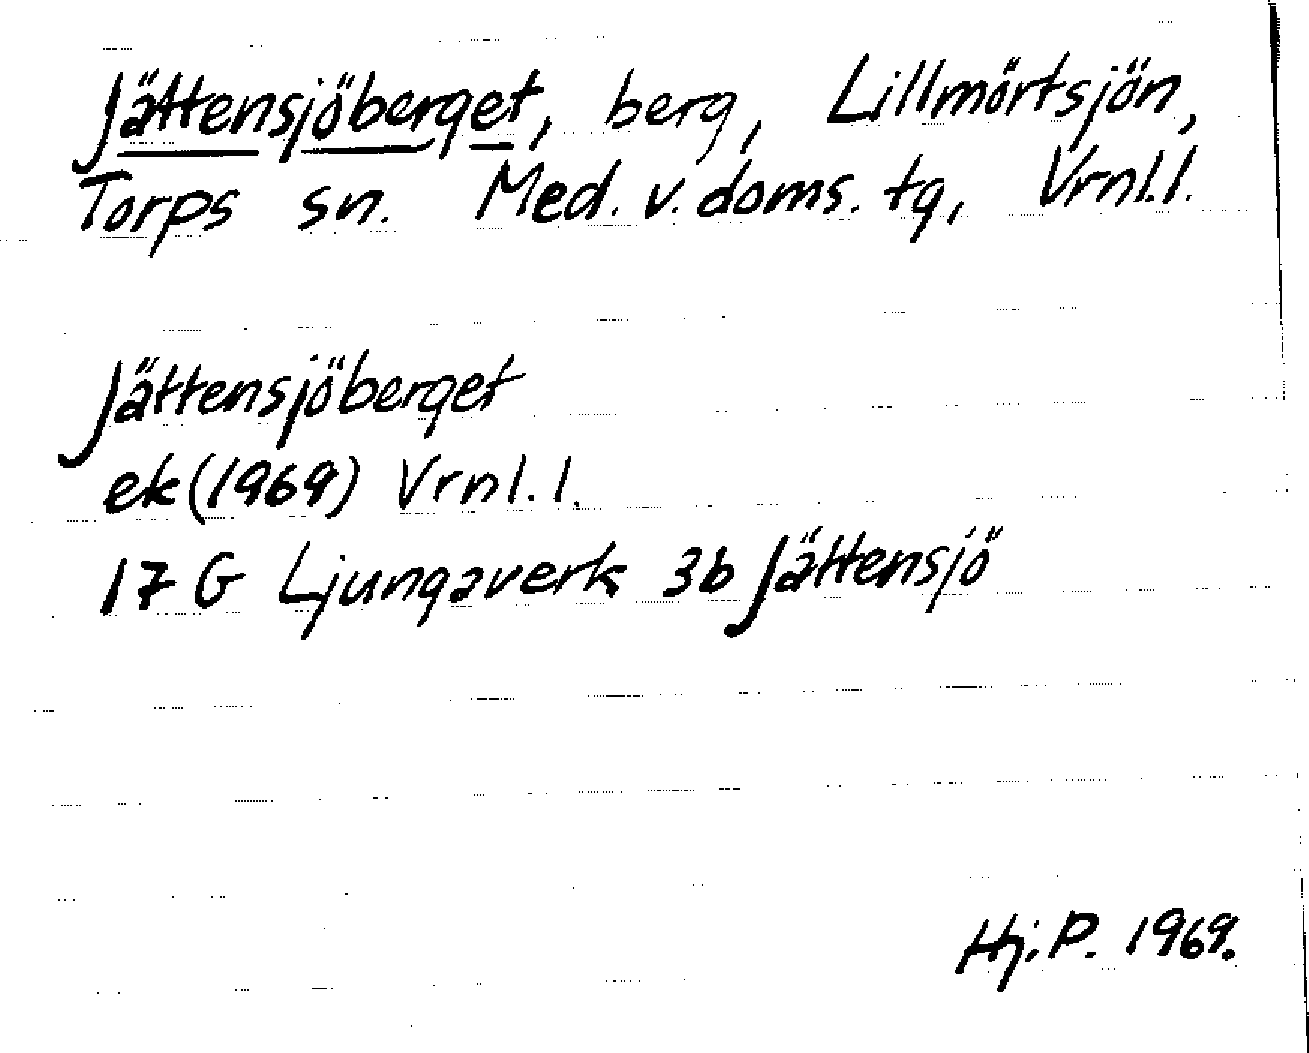 Jättensjöberget, berg, Lillmörtsjön,
Torps sn. Med. v. doms. tg, Vrnl.l.
Jättensjöberget
ek (1969) Vrnl.l.
17 G Ljungaverk 3b Jättensjö
Hj. P. 1969.